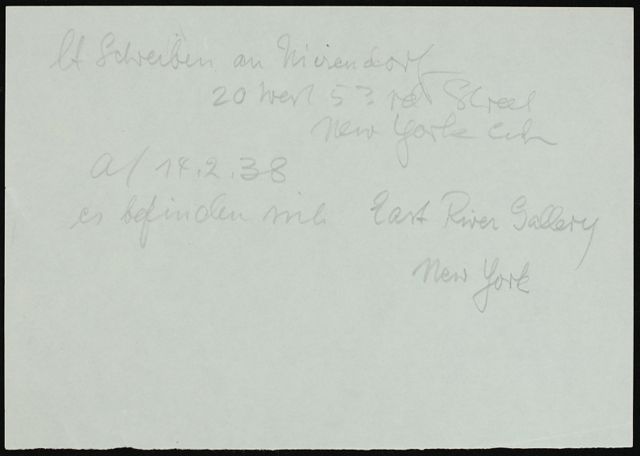 lt Schreiben an Nierendorf
20 West 53rd Street
New York City
a/ 14.2.38
es befinden sich East River Gallery
New York